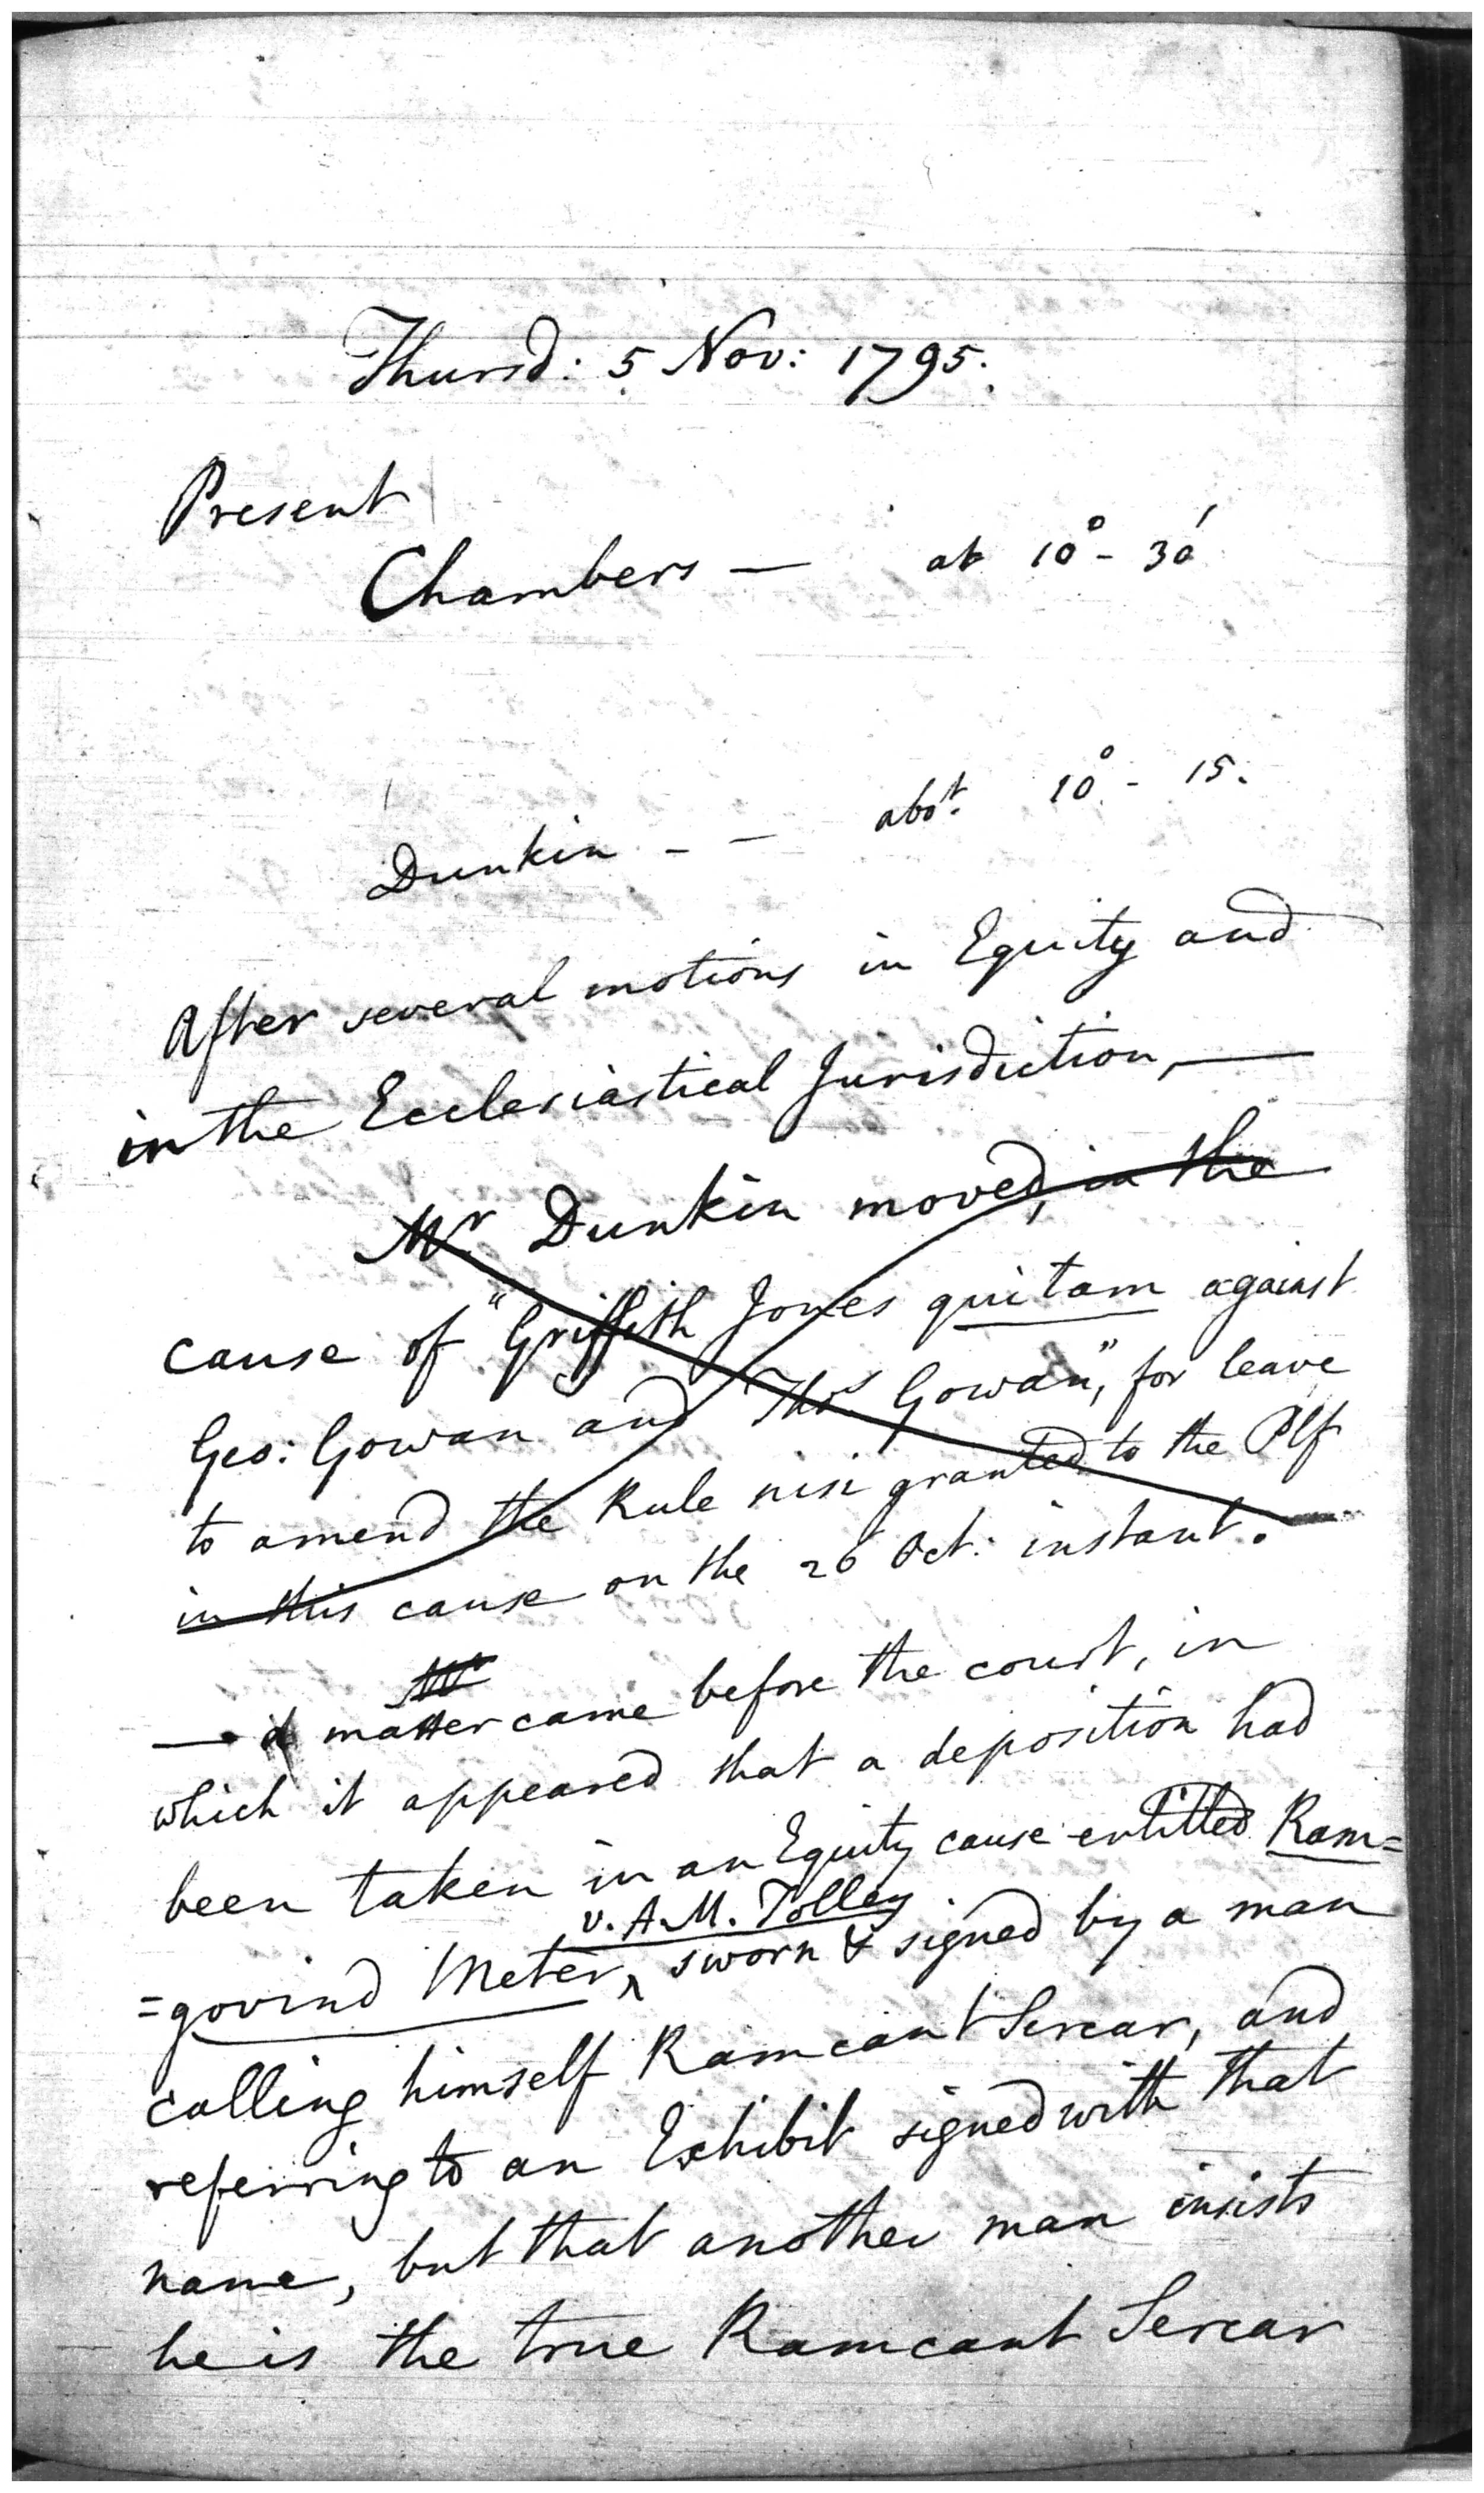 Thursd: 5 Nov: 1795.
Present
Chambers — at 10° - 30'
Dunkin - - abot. 10° - 15.
After several motions in Equity and
in the Ecclesiastical Jurisdiction, —
Mr Dunkin moved, in the
cause of "Griffith Jones qui tam against
Geo: Gowan and Thos Gowan", for leave
to amend the Rule nisi granted to the Plf
in this cause on the 26 Oct: instant.
— a matter came before the court, in
which it appeared that a deposition had
been taken in an Equity cause entitled Ram=
v. A. M. Tolley
=govind Meter, sworn & signed by a man
calling himself Ramcant Sercar, and
referring to an Exhibit signed with that
name, but that another man insists
he is the true Ramcant Sercar